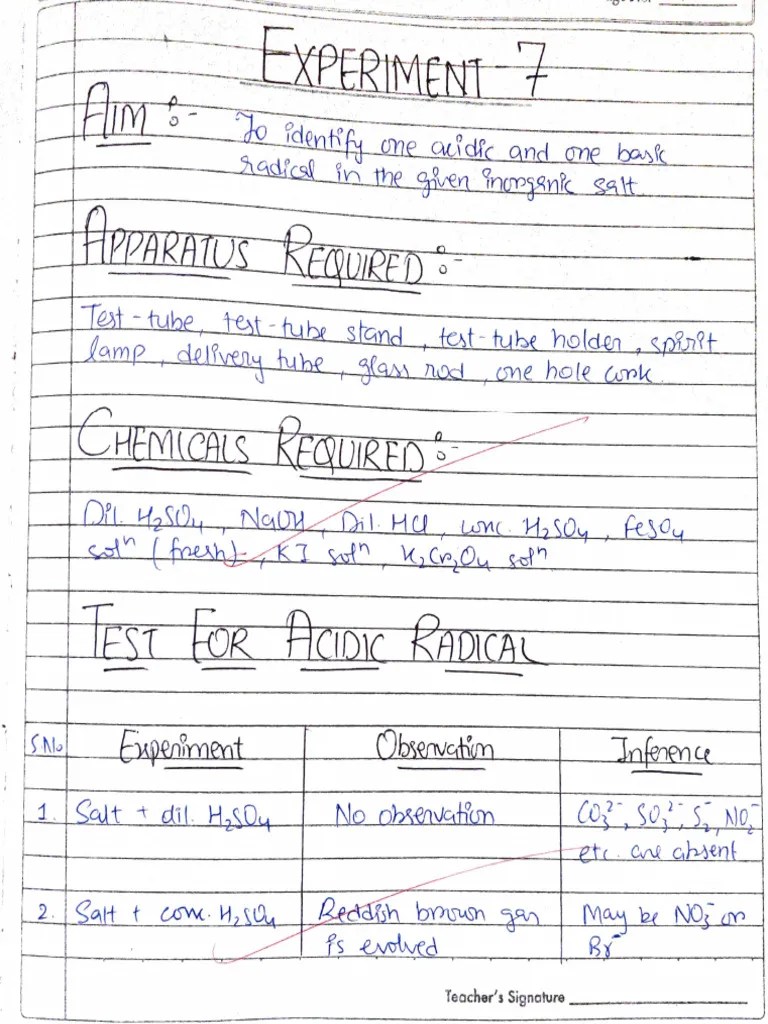 EXPERIMENT-7
AIM :- To identify one acidic and one basic
radical in the given inorganic salt
APPARATUS REQUIRED :-
Test-tube, test-tube stand, test-tube holder, spirit
lamp, delivery tube, glass rod, one hole cork.
CHEMICALS REQUIRED :-
Dil. H₂SO₄, NaOH, Dil. HCl, conc. H₂SO₄, FeSO₄
solⁿ (fresh), KI solⁿ, K₂Cr₂O₄ solⁿ
TEST FOR ACIDIC RADICAL
S No Experiment Observation Inference
1. Salt + dil. H₂SO₄ No observation CO₃²⁻, SO₃²⁻, S₂⁻, NO₂⁻
etc. are absent
2. Salt + conc. H₂SO₄ Reddish brown gas May be NO₃⁻ or
is evolved Br⁻
Teacher's Signature